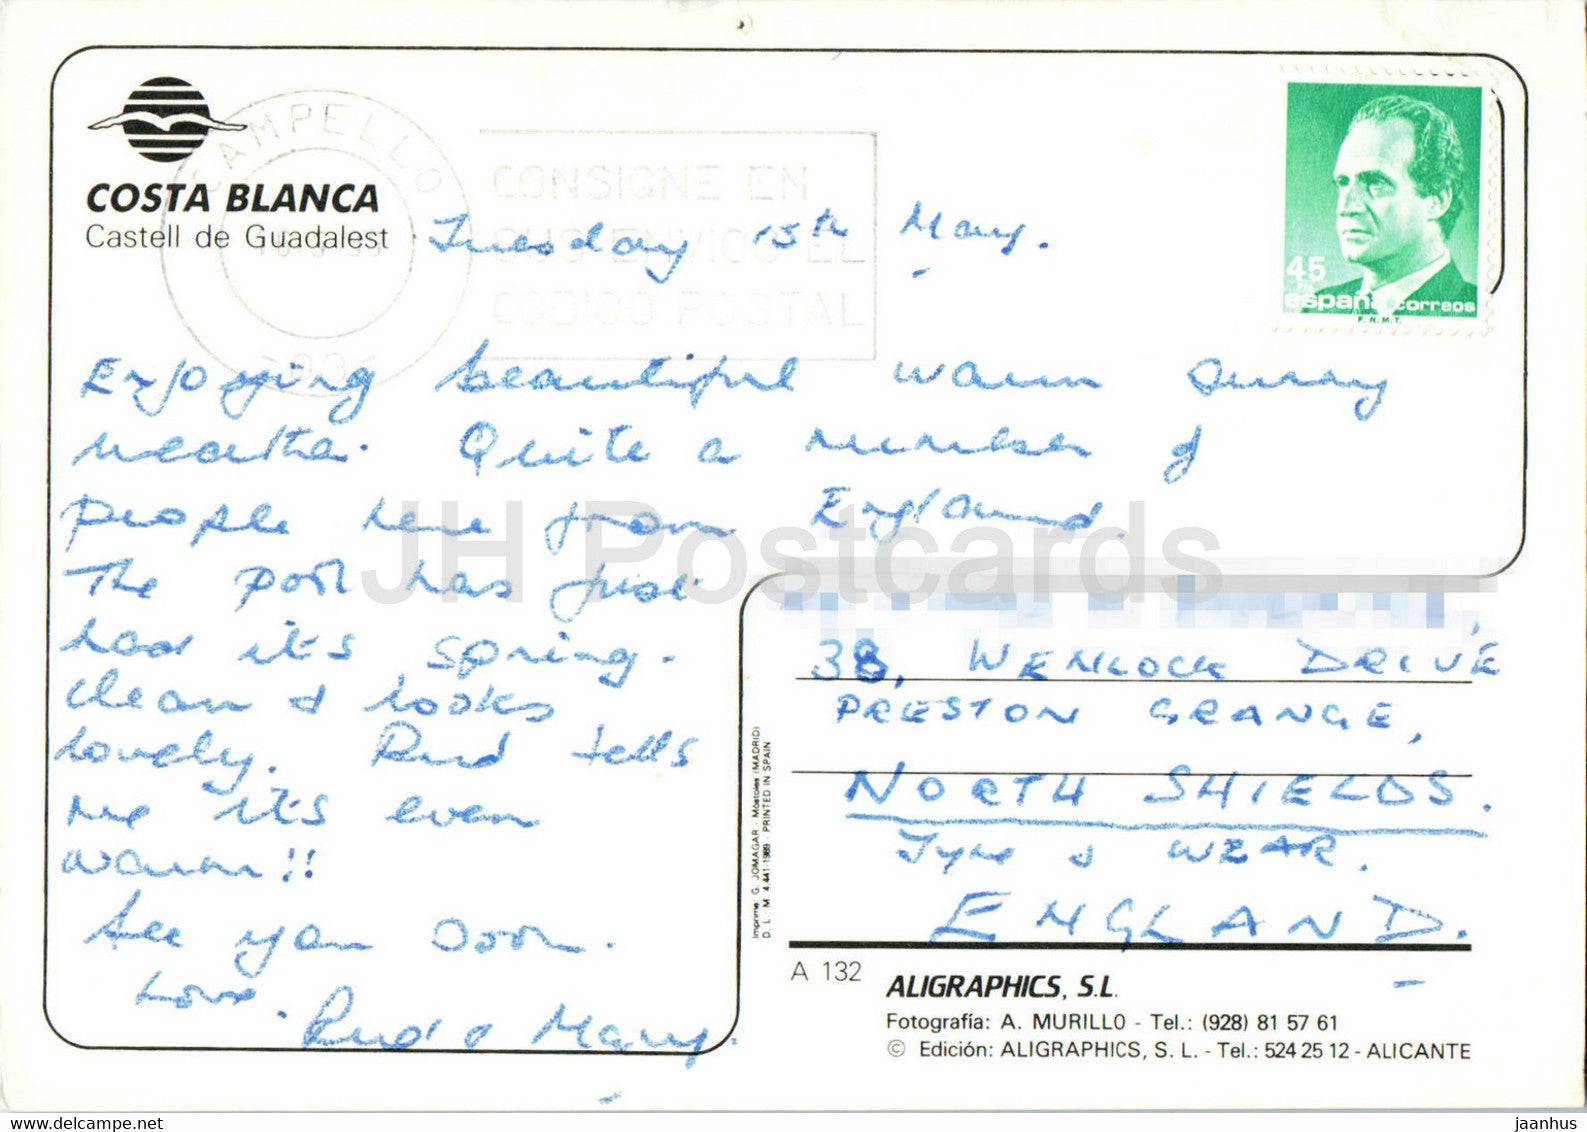 COSTA BLANCA
Castell de Guadalest
CAMPELLO
CONSIGNE EN
SUS ENVIOS EL
CODIGO POSTAL
45
PTA
españa correos
F.N.M.T.
Tuesday 15th May.
Enjoying beautiful warm sunny
weather. Quite a number of
people here from England.
The pool has just
had it's spring.
clean & looks
lovely. Rud tells
me it's even
warm!!
See you soon.
Love.
Rud & Mary.
38, WENLOCK DRIVE
PRESTON GRANGE,
NORTH SHIELDS.
Tyne & WEAR.
ENGLAND.
Imprime: G. JOMAGAR - Móstoles (MADRID)
D. L.: M. 4.441-1989 PRINTED IN SPAIN
A 132
ALIGRAPHICS, S.L.
Fotografía: A. MURILLO - Tel.: (928) 81 57 61
© Edición: ALIGRAPHICS, S. L. - Tel.: 524 25 12 - ALICANTE
JH Postcards
www.delcampe.net
jaanhus